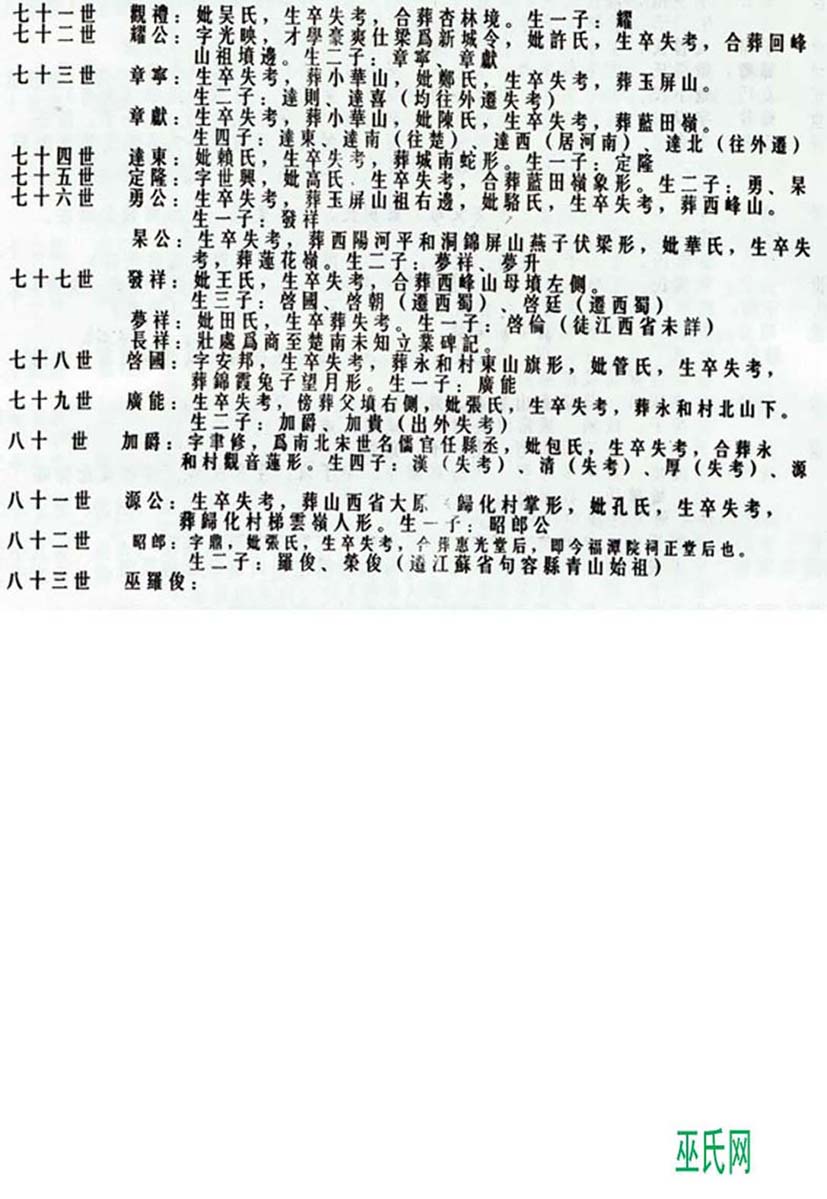 七十一世 觀禮：妣吴氏，生卒失考，合葬杏林境。生一子：耀
七十二世 耀公：字光映，才學豪爽仕梁爲新城令，妣許氏，生卒失考，合葬回峰
山祖墳邊。生二子：章寧、章獻
七十三世 章寧：生卒失考，葬小華山，妣鄭氏，生卒失考，葬玉屏山。
生二子：達則、達喜（均往外遷失考）
章獻：生卒失考，葬小華山，妣陳氏，生卒失考，葬藍田嶺。
生四子：達東、達南（往楚）、達西（居河南）、達北（往外遷）
七十四世 達東：妣賴氏，生卒失考，葬城南蛇形。生一子：定隆
七十五世 定隆：字世興，妣高氏，生卒失考，合葬藍田嶺象形。生二子：勇、杲
七十六世 勇公：生卒失考，葬玉屏山祖右邊，妣駱氏，生卒失考，葬西峰山。
生一子：發祥
杲公：生卒失考，葬西陽河平和洞錦屏山燕子伏梁形，妣華氏，生卒失
考，葬蓮花嶺。生二子：夢祥、夢升
七十七世 發祥：妣王氏，生卒失考，合葬西峰山母墳左側。
生三子：啓國、啓朝（遷西蜀）、啓廷（遷西蜀）
夢祥：妣田氏，生卒葬失考。生一子：啓倫（徒江西省未詳）
長祥：壯處爲商至楚南未知立業碑記。
七十八世 啓國：字安邦，生卒失考，葬永和村東山旗形，妣管氏，生卒失考，
葬錦霞兔子望月形。生一子：廣能
七十九世 廣能：生卒失考，傍葬父墳右側，妣張氏，生卒失考，葬永和村北山下。
生二子：加爵、加貴（出外失考）
八十 世 加爵：字聿修，爲南北宋世名儒官任縣丞，妣包氏，生卒失考，合葬永
和村觀音蓮形。生四子：漢（失考）、清（失考）、厚（失考）、源
八十一世 源公：生卒失考，葬山西省大原 歸化村掌形，妣孔氏，生卒失考，
葬歸化村梯雲嶺人形。生一子：昭郎公
八十二世 昭郎：字鼎，妣張氏，生卒失考，合葬惠光堂后，即今福潭院祠正堂后也。
生二子：羅俊、榮俊（遷江蘇省句容縣青山始祖）
八十三世 巫羅俊：
巫氏网